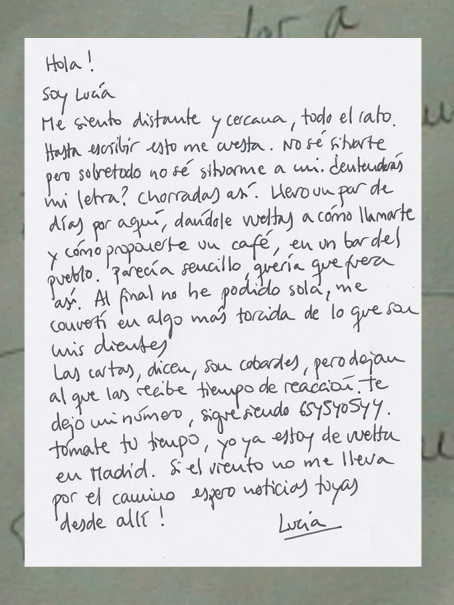 Hola!
Soy Lucía
Me siento distante y cercana, todo el rato.
Hasta escribir esto me cuesta. No sé situarte
pero sobretodo no sé situarme a mi. ¿entenderás
mi letra? Chorradas así. Llevo un par de
días por aquí, dándole vueltas a cómo llamarte
y cómo proponerte un café, en un bar del
pueblo. Parecía sencillo, quería que fuera
así. Al final no he podido sola, me
convertí en algo más torcida de lo que son
mis dientes
Las cartas, dicen, son cobardes, pero dejan
al que las recibe tiempo de reacción. te
dejo mi número, sigue siendo 654540544.
tómate tu tiempo, yo ya estoy de vuelta
en Madrid. Si el viento no me lleva
por el camino espero noticias tuyas
desde allí!
Lucía